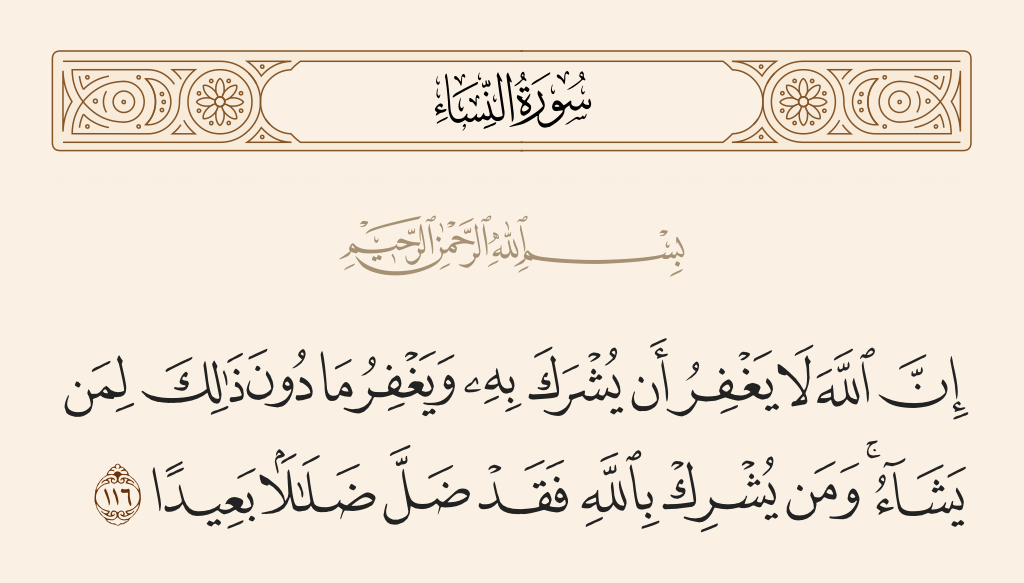 سُورَةُ النِّسَاءِ
بِسْمِ ٱللَّهِ ٱلرَّحْمَٰنِ ٱلرَّحِيمِ
إِنَّ ٱللَّهَ لَا يَغْفِرُ أَن يُشْرَكَ بِهِۦ وَيَغْفِرُ مَا دُونَ ذَٰلِكَ لِمَن
يَشَآءُ ۚ وَمَن يُشْرِكْ بِٱللَّهِ فَقَدْ ضَلَّ ضَلَٰلًۢا بَعِيدًا ١١٦